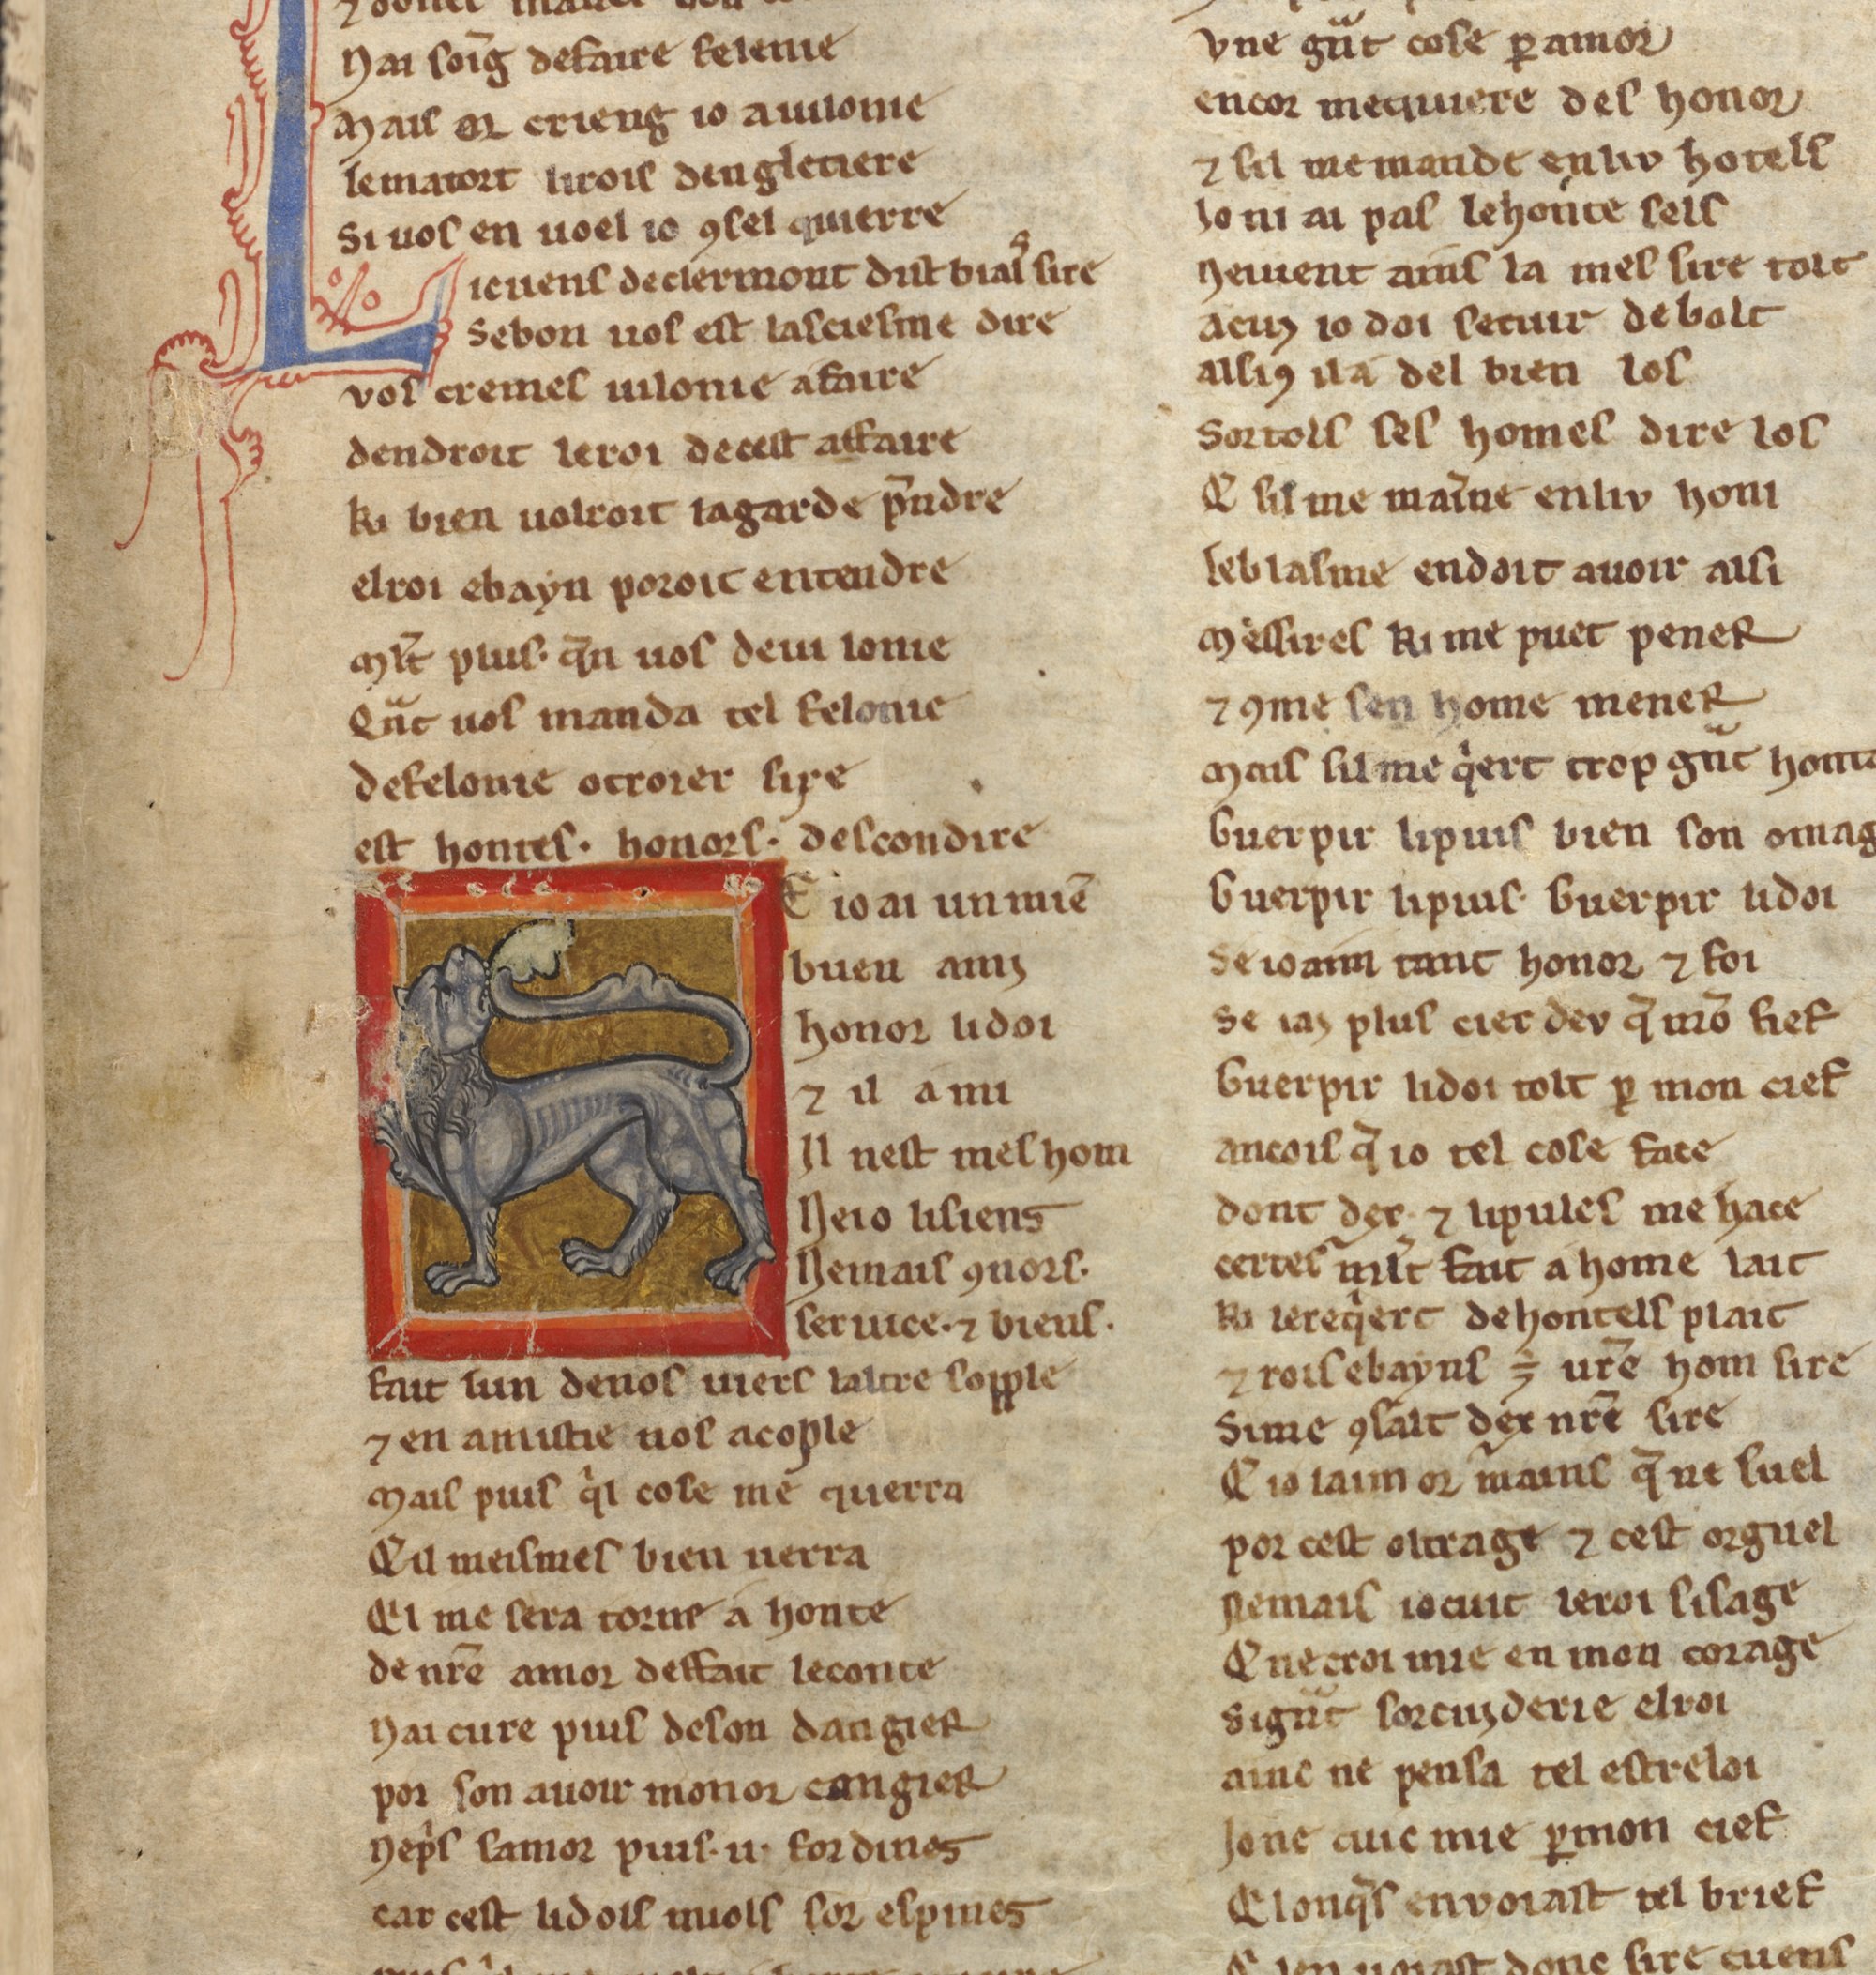 Nai soīg defaire felenie
Mais or crieng io auilonie
Sematort lirois dengletiere
Si uos en uoel io ꝯsel quierre
Licuens declermont dist biaꝰ sire
Sebon uos est lasciesme dire
vos cremes uilonie afaire
dendroit leroi decest affaire
ki bien uolroit lagarde pͬndre
elroi ebayn poroit entendre
Ml̄t plus· q̄n uos deui lonie
Qūt uos manda tel felonie
defelonie otroier sire
est hontes· honors· descondire
E io ai un miē
buen amj
honor lidoi
⁊ il a mi
Il nest mes hom
Neio lisiens
Nemais ꝯuors·
seruice·⁊ biens·
fait lun deuos uiers laltre sople
⁊ en amistie uos acople
Mais puis qͥl cose me querra
Cil meismes bien uerra
Ql me sera torne a honte
de nr̄e amor deffait leconte
Nai cure puis deson dangier
por son auoir monor cangier
Nepͥs samor puis· ii· fordines
car cest lidols miols sor espines
vne gūt cose ꝑ amor
encor mequiere des honor
⁊ sil me mande enliv hotels
Io ni ai pas lehonte sels
Neuient ains la mes sire tolt
Acuj io doi seruir debolt
alsiꝯ ila del bien los
Sortols ses homes dire los
E sil me maīne enliv honi
leblasme endoit auoir alsi
Messires ki me puet pener
⁊ ꝯme sen home mener
Mais sil me qͥert trop gūt honte
Guerpir lipuis bien son omag
Guerpir lipuis· Guerpir lidoi
Se io aim tant honor ⁊ foi
Se iaj plus cier dev q̄ mō fief
Guerpir lidoi tolt ꝑ mon cief
ancois q̄ io tel cose face
dont dex· ⁊ lipules me hace
certes ml̄t fait a home lait
ki lereqͥert dehontels plait
⁊ rois ebayns ÷ ur̄e hom sire
Sime ꝯsalt dex nr̄e sire
E io laim or mains q̄ ne suel
por cest oltrage ⁊ cest orguel
Nemais iocuit leroi sisage
E necroi mie en mon corage
Sigūt sorcujderie elroi
ainc ne pensa tel estreloi
Jone cuic mie ꝑmon cief
Qlonqͥs envoiast tel brief